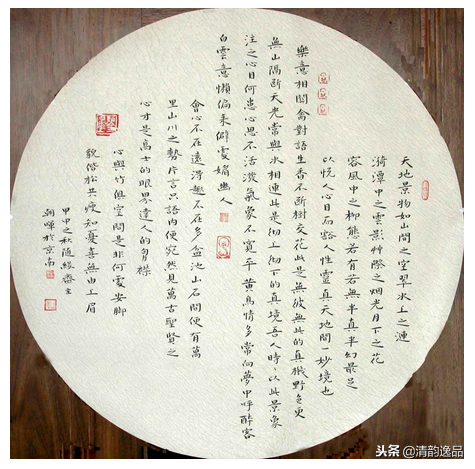 天地景物如山間之空翠水上之漣
漪潭中之雲影草際之烟光月下之花
容風中之柳態若有若無半真半幻最足
以悅人心目而豁人性靈真天地間一妙境也
樂意相關禽對語生香不斷樹交花此是無彼無此的真機野色更
無山隔斷天光常與水相連此是徹上徹下的真境吾人時以此景象
注之心目何患心思不活潑氣象不寬平 黃鳥情多常向夢中呼醉客
白雲意懶偏來僻處媚幽人
會心不在遠得趣不在多盆池山石間便有萬
里山川之勢片言隻語內便宛然見萬古聖賢之
心才是高士的眼界達人的胸襟
心與竹俱空問是非何處安脚
貌偕松共瘦知憂喜無由上眉
甲申之秋隨緣齋主
於京南
头条 @清韵逸品